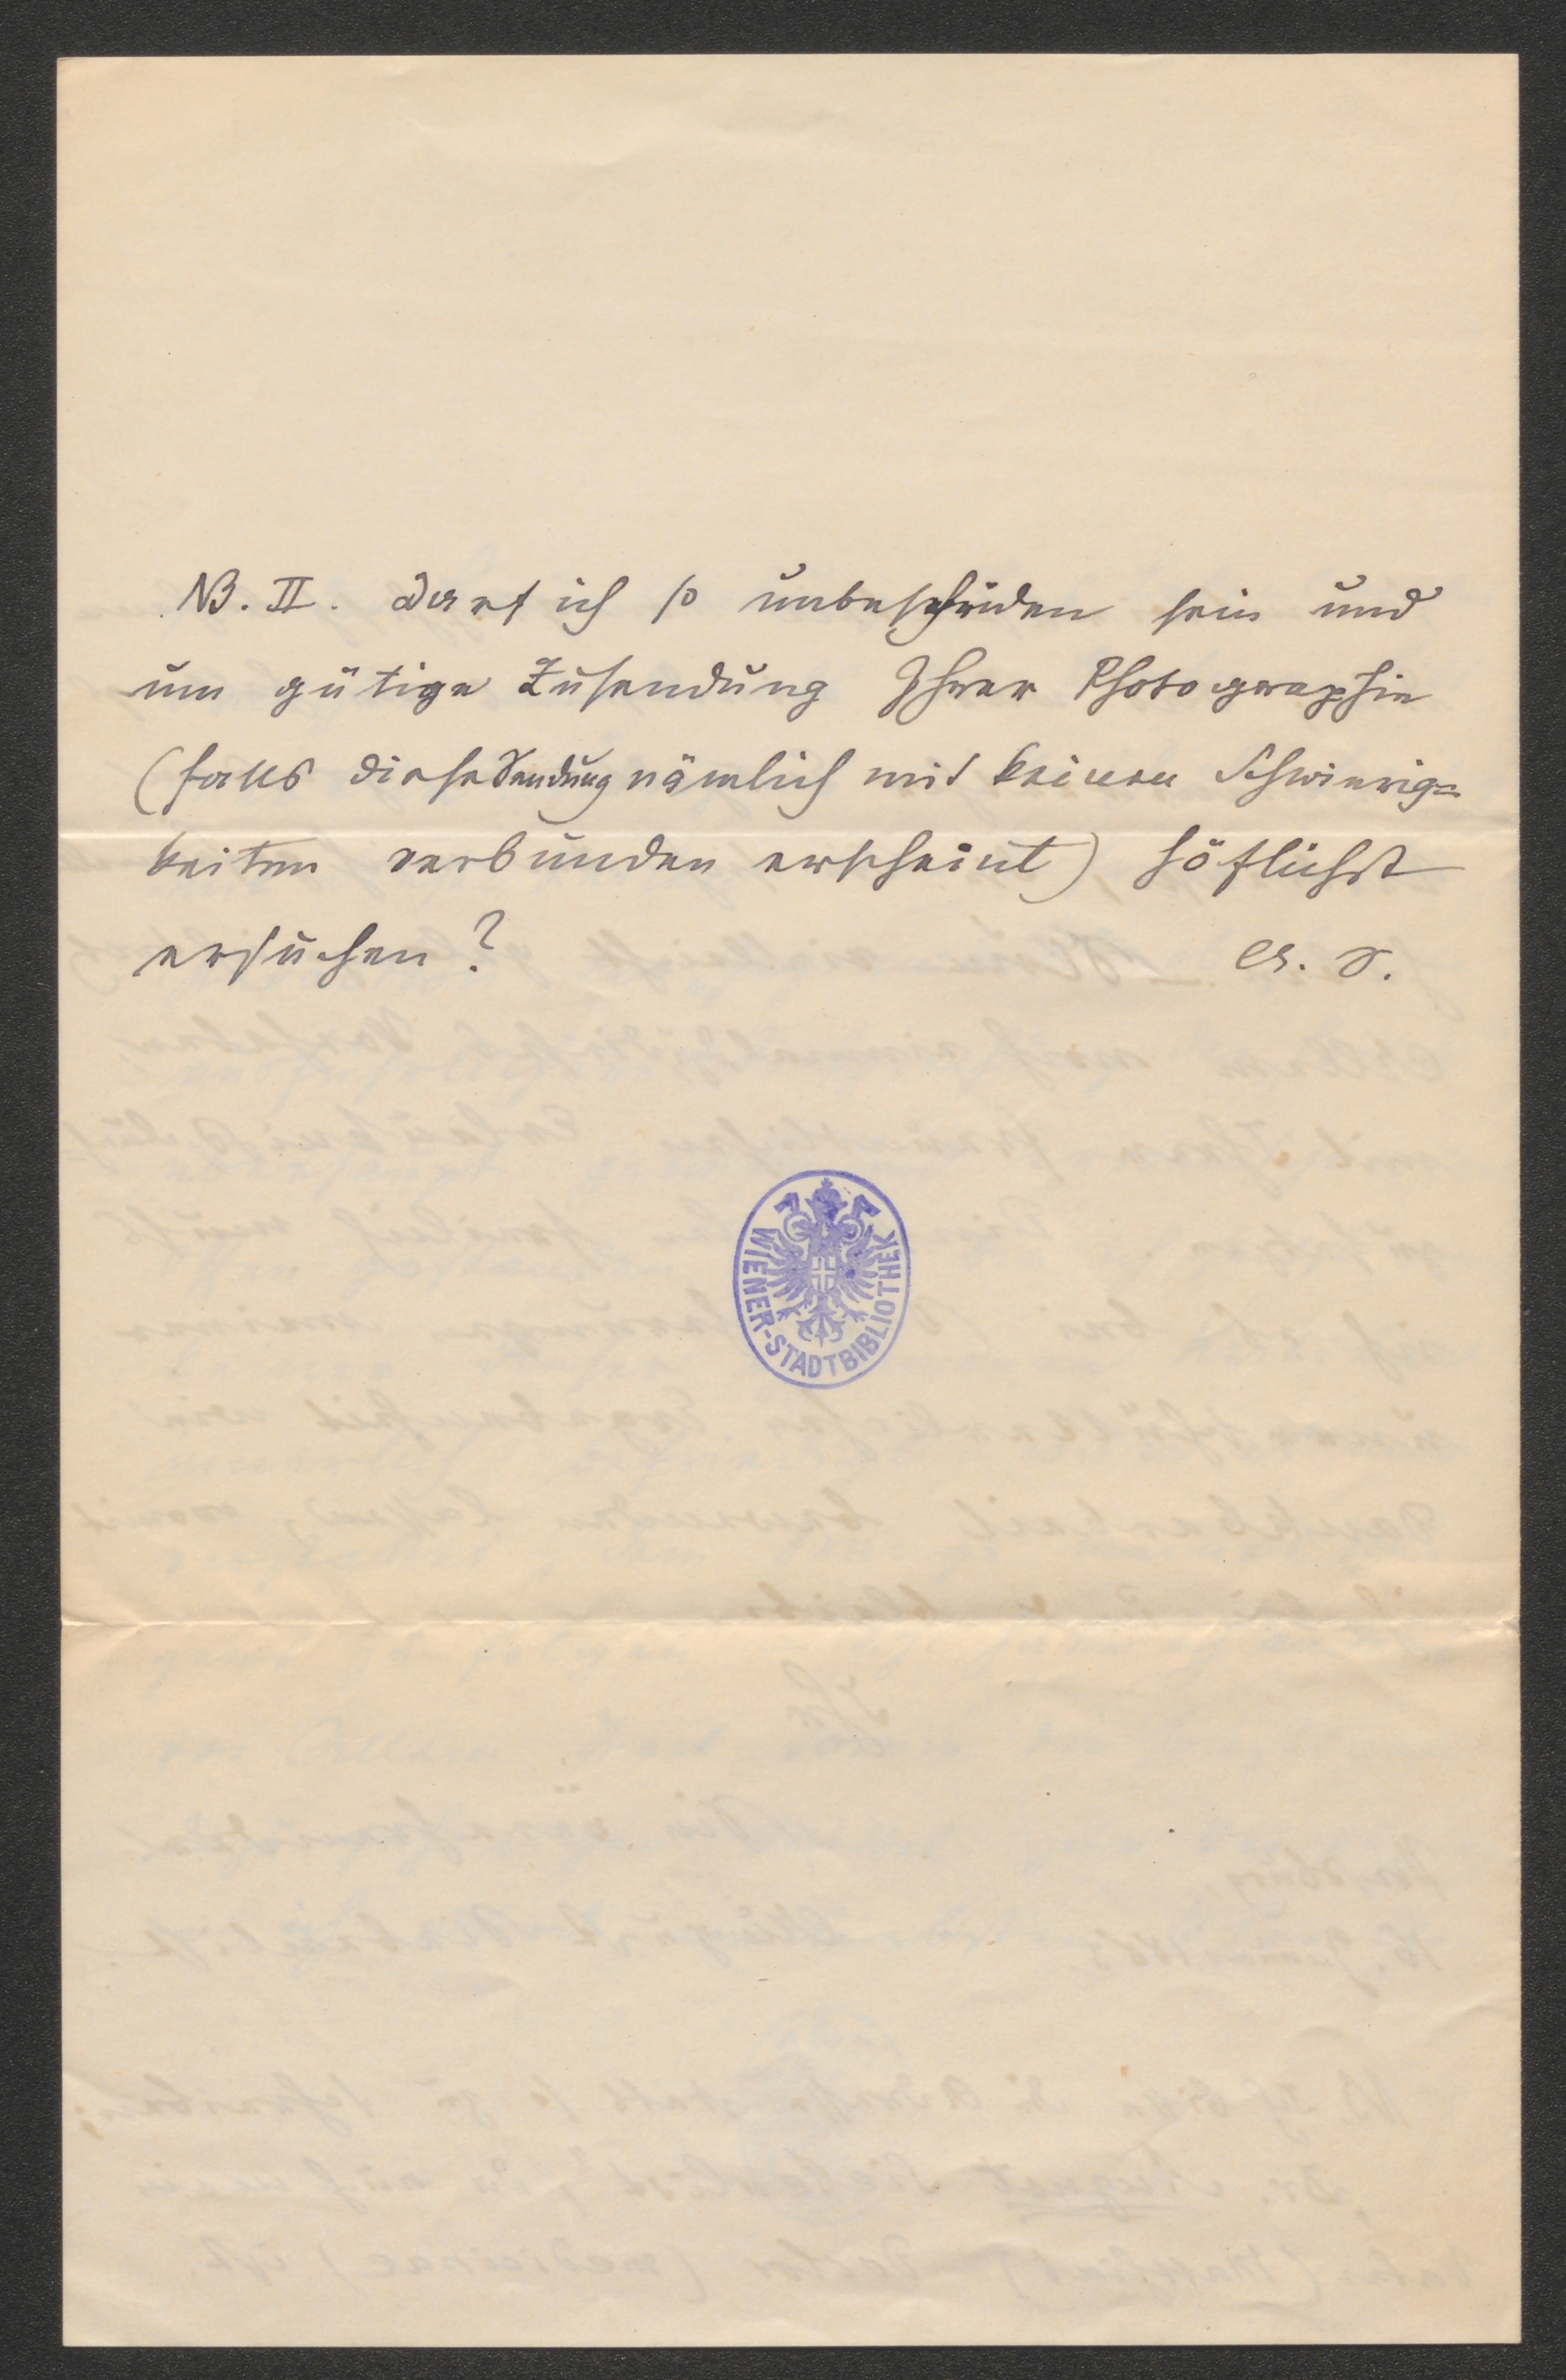 NB. II. Darf ich so unbescheiden sein und
um gütige Zusendung Ihrer Photographie
(falls diese Sendung nämlich mit keinen Schwierig=
keiten verbunden erscheint) höflichst
ersuchen? A. S.
WIENER-STADTBIBLIOTHEK